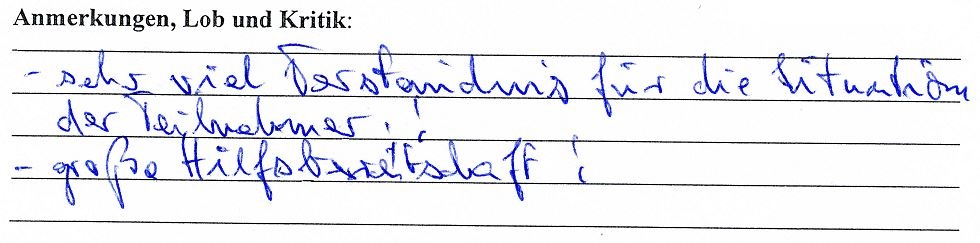 Anmerkungen, Lob und Kritik:
- sehr viel Verständnis für die Situation
der Teilnehmer.!
- große Hilfsbereitschaft!